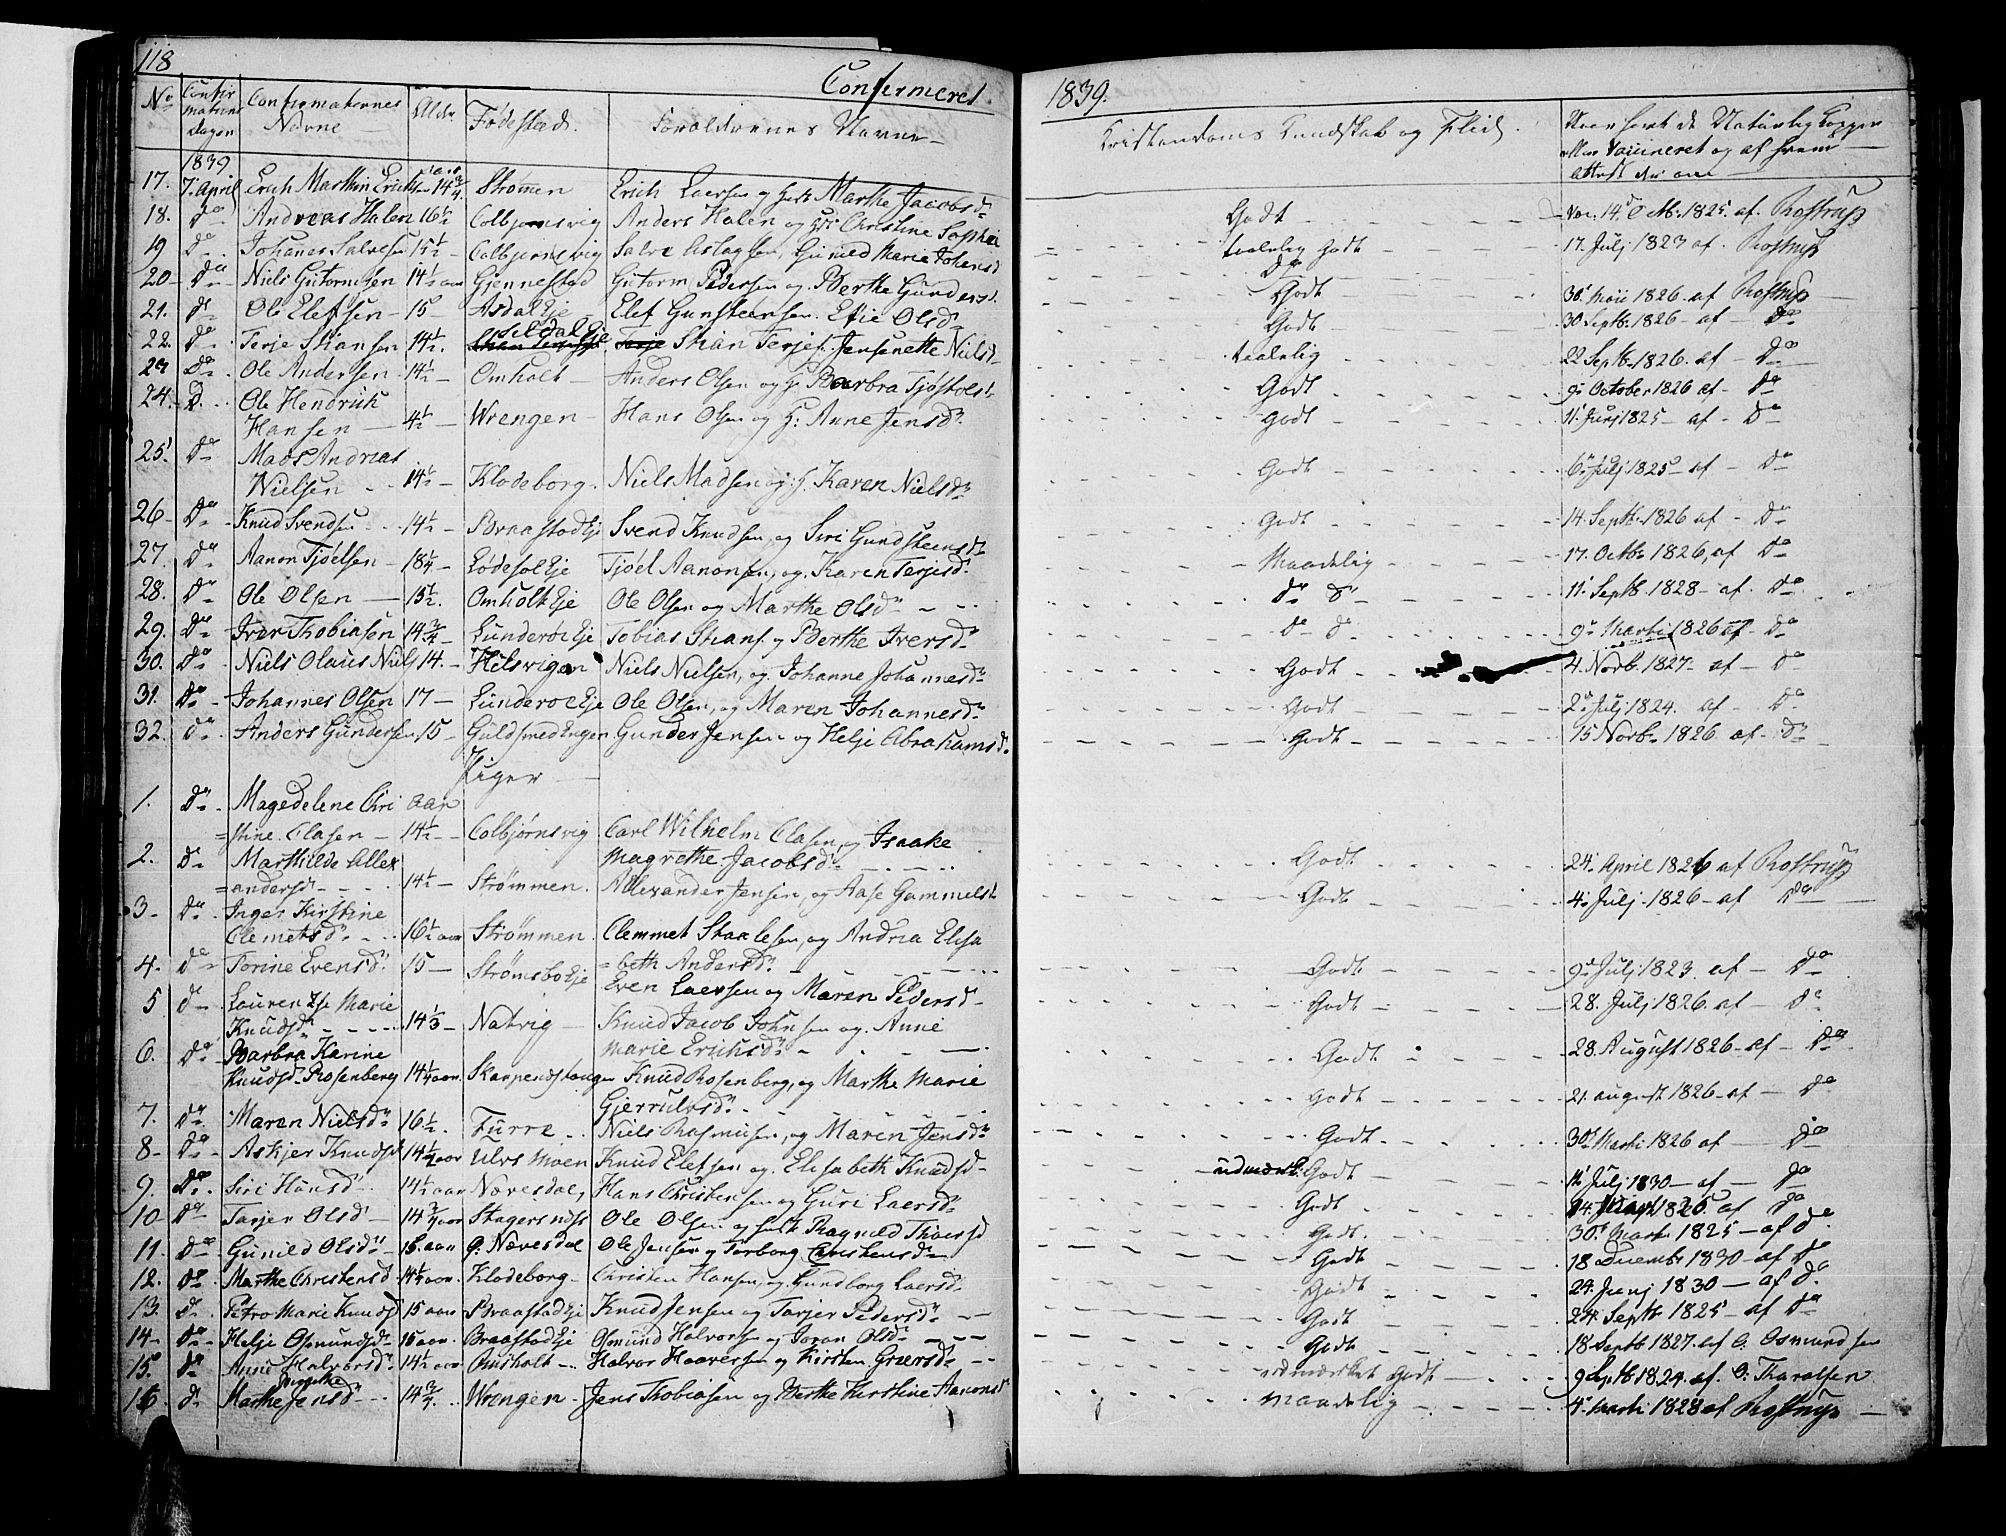 118
Confirmeret
1839.
No
Confirmations Dagen
Confirmaternes Navne
Alder
Fødested.
Foreldrenes Navne
Kristendoms Kundskab og Flid.
1839
17. 7. April Erich Marthin Erichsen 14 3/4. Strømen Erich Laersen og Marthe Jacobsd. Godt Vac. 14. 1825. af. Rostrup
18. Do Andreas Halen 16 1/2 Colbjønsvig Anders Halen og Christine Sophie taalelig godt 17. Julj 1823 af. Rostrup
19 Do Johanes Salvesen 15 1/2 Colbjørnsvig Salve Aslagsen, Guneld Marie Johansd Do
20 Do Niels Gutormsen 14 1/2 aar Gjennestad Gutorm Pedersen og Berthe Gundersd. Godt 30. Maii 1826 af Rostrup
21. Do Ole Elefsen 15 Asdal Eje Elef Gunstensen. Elie Olsd. Godt 30 Septb. 1826 af Do
22. Do Terje Skansen 14 1/2. Seldal Eje Skan Terjes. Jensenette Nielsd. taalelig 22 Septb. 1826. af Do
23 Do Ole Andersen 14 1/2 Omholt Anders Olsen og Barbra Tjøstolsd. Godt 9 October 1826 af Do
24. D. Ole Hendrich
Hansen 4 1/2 Wrengen Hans Olsen og H: Anne Jensd. Godt 11 Junj 1825 af Do
25. Do Mads Andreas
Nielsen 14 1/2 Klodeborg. Niels Madsen og H. Karen Nielsd. Godt 6 Julj 1825 af Do
26 Do Knud Svendsen 14 1/2 Braastad Eje Svend Knudsen, og Siri Gundsteensd. Godt 14. Septb. 1826 af Do
27. Do Aanon Tjøelsen 18 1/4 Lødesøl Eje Tjøel Aanonsen, og Karen Terjesd. Maadelig 17. Octb. 1826, af Do
28. Do Ole Olsen 15 1/2. Omholt Eje Ole Olsen og Marthe Olsd. Do Do 11 Septb. 1828 af. Do
29. Do Iver Thobiasen 14 3/4 Lunderøe Eje Tobias Skans. og Berthe Iversd. Do Do 9 Marti 1826 af Do
30. Do Niels Olaus Niels 14. Hilsvigen Niels Nielsen, og Johanne Johannesd. Godt 4. Novb. 1827. af Do
31. Do Johannes Olsen 17 Lunderøe Eje Ole Olsen, og Maren Johannesd. Godt 2 Julj 1824. af Do
32. Do Anders Gundersen 15 Guldsmedengen Gunder Jensen og Helje Abrahamsd. Godt 15 Novb. 1826 af Do
Piger
1. Do Magedelene Chri aar
=stine. Clasen 14 1/2 Colbjørnsvig Carl Wilhelm Clasen, og Isaake
Magrethe Jacobsd. Godt 24. April 1826 af Rostrup
2. Do Marthilde Allex
=andersd. 14 1/2 Strømmen. Allexander Jensen, og Aase Gammelsd. Godt 4. Julj 1826 af Do
3 Do Inger Kirstine
Clemetsd. 16 1/2 aar Strømmen. Clemmet Staalesen, og Andrea Elisa
=beth Andersd. Godt 9 Julj 1823. af Do
4. Do Torine Evensd. 15 Strømsbo Eje Even Laersen og Maren Pedersd. Godt 28. Julj 1826. af Do
5 Do Laurentse Marie
Knudsd. 14 1/3 Natvig Knud Jacob Johnsen og. Anne
Marie Erichsd. Godt 28. August 1826 af Do
6. Do Barbra Karine
Knudsd. Rosenberg 14 1/4 aar. Skarpenestangen Knud Rosenberg, og Marthe Marie
Gjerrulvsd. Godt 21. august 1826 af Do
7. Do Maren Nielsd. 16 1/2. Furre Niels Rasmusen, og Maren Jensd. Godt 30 Marti 1826 af Do
8 Do Askjer Knudsd. 14 1/2 aar Ulvs Moen Knud Elefsen og. Elisabeth Knudsd. udmærk. Godt 11 Julj 1830 af Do
9. Do. Siri Hansd. 14 1/2 aar Næresdal, Hans Christensen og Guri Laersd. Godt 24. 1826 af Do
10 Do Tarjer Olsd. 14 3/4 aar Stagersnes Ole Olsen og Ragnild Thoersd Godt 30 Mart. 1825 af do
11. Do Guneld Olsd. 15. aar G. Næresdal Ole Jensen og Torborg Christensd. Godt 18 Decemb: 1830 af do
12. Do Marthe Christensd. 14 1/2 aar. Klodeborg Christen Hansen, og Gundborg Laersd. Godt 24. Junj 1830 af do
13. Do Petro Marie Knudsd. 15 aar Braastad Eje Knud Jensen og Tarjer Pedersd. Godt 24. Septb. 1825 af do
14 Do Helje Osmundsd. 15 aar. Braastad Eje Osmund Halvorsen og Joran Olsd. Godt 18 Septb 1827. af O. Osmundsen
15. Do Anne Halvorsd. 14 1/2 aar Omholt Halvor Haaversen og Kirsten Greersd. udmærket Godt 9 Septb. 1824. af. O: Tharalsen
16 D. Marthe Jensd. 14 3/4. Wrengen Jens Thobiasen og Berthe Kirstine Aanonsd. maadelig 4 Marti 1828 af Rostrup